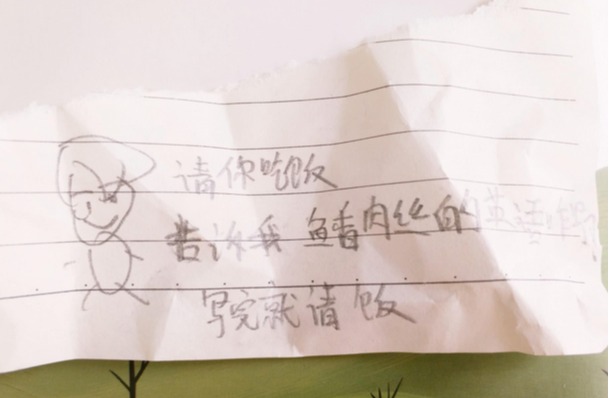 请你吃饭
告诉我 鱼香肉丝的英语
写完就请饭